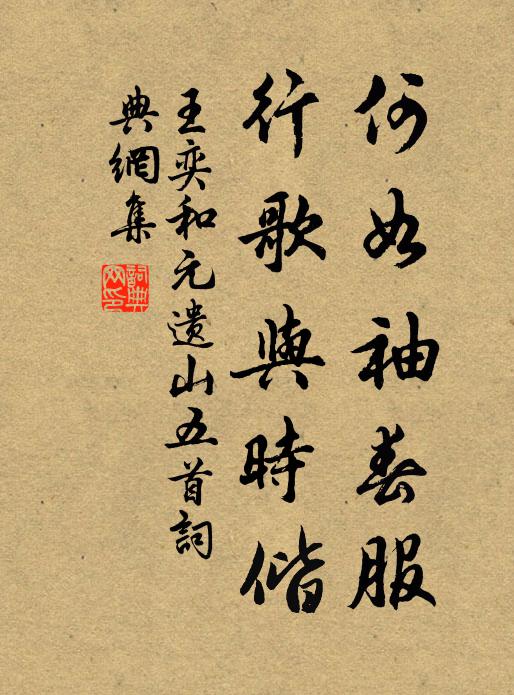 何如袖春服
行歌與時偕
王奕和元遺山五首詞
典網集
詞典網印